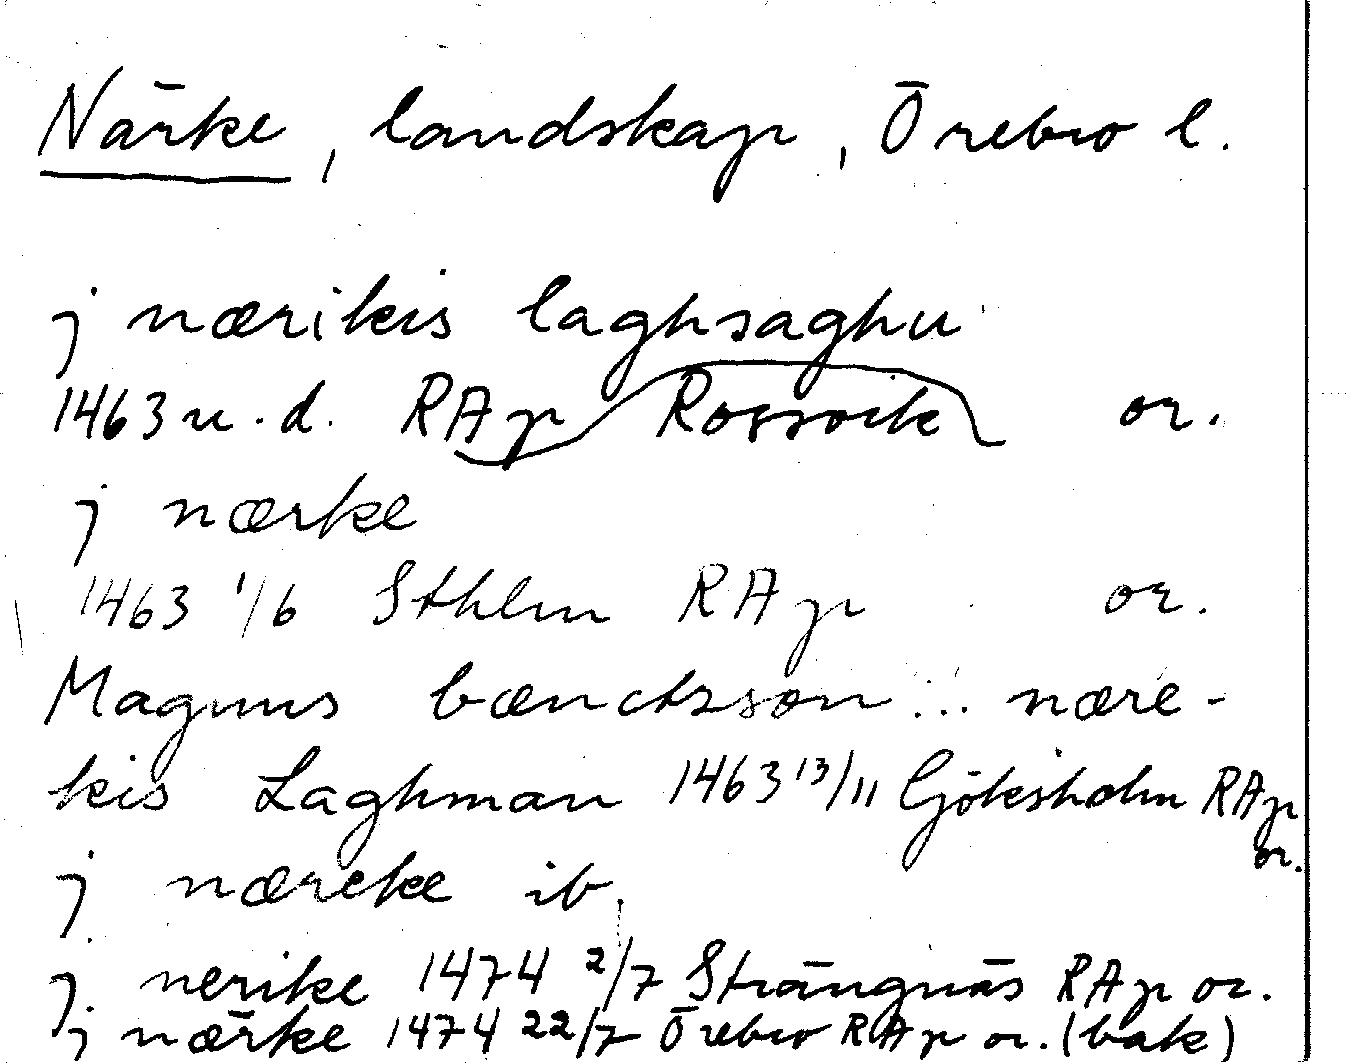 Närke, landskap, Örebro l.
j nærikis laghsaghu
1463 u.d. RAp Rossvik or.
j nærke
1463 1/6 Sthlm RAp or.
Magnus bænctsson ... nære-
kis Laghman 1463 13/11 Göksholm RAp
or.
j næreke ib.
j nerike 1474 2/7 Strängnäs RAp or.
j nærke 1474 22/7 Örebro RAp or. (bak)